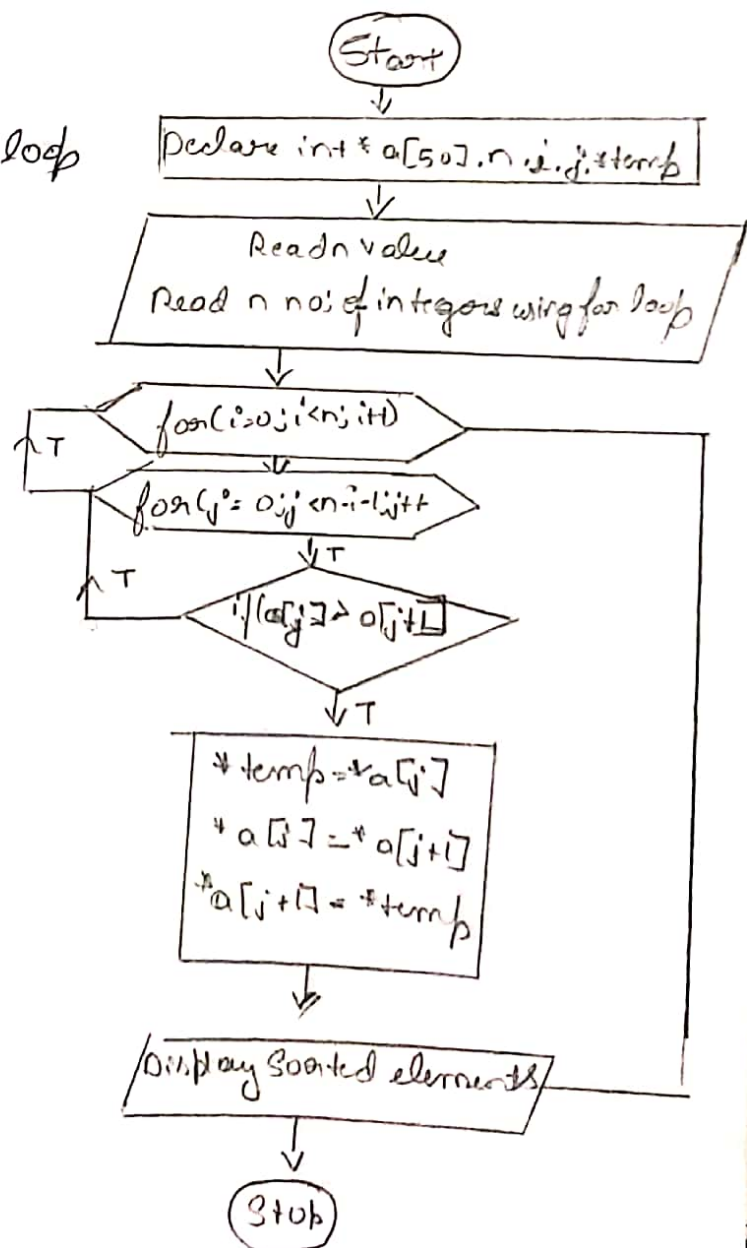 Start
loop
Declare int * a[50].n.i.j.*temp
Read n value
Read n no; of integers using for loop
for(i=0;i<n;i++)
T
for(j=0;j<n-i-1;j++
T
T
if(a[j]>a[j+1]
T
*temp=*a[j]
*a[j]=*a[j+1]
*a[j+1]=*temp
Display Soorted elements
Stop